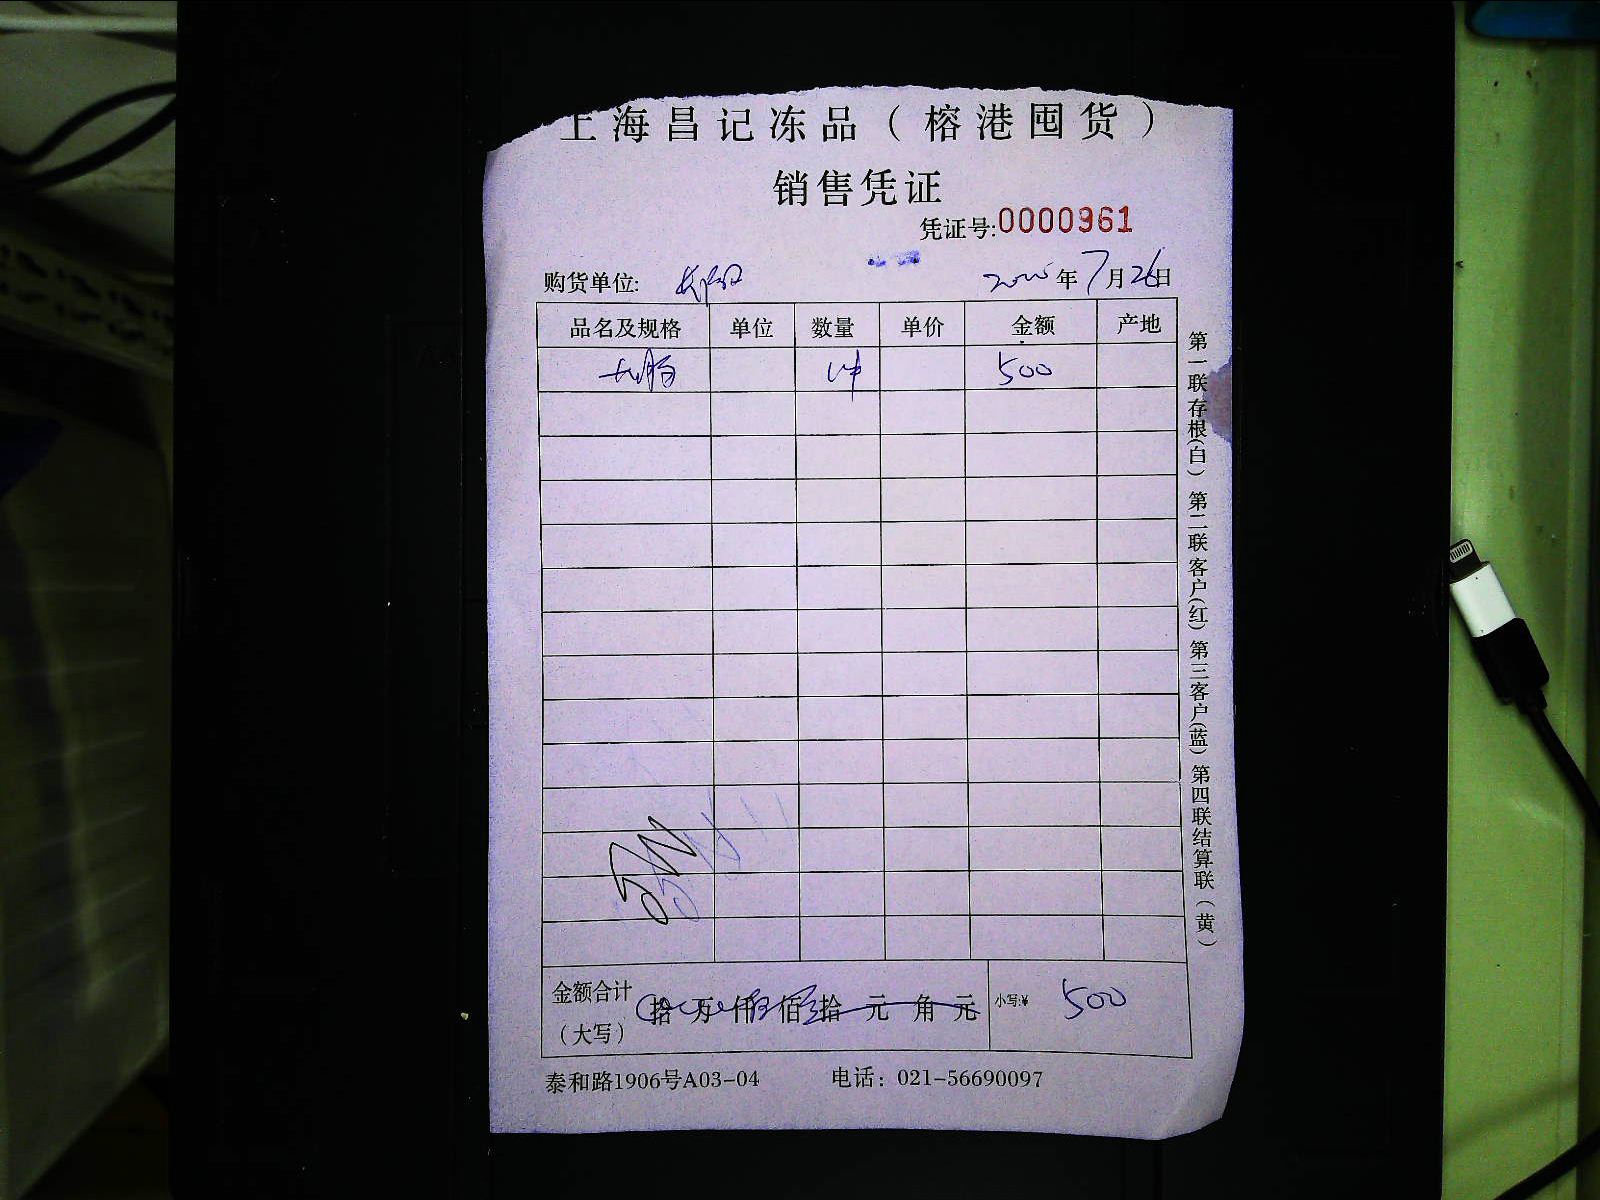 上海昌记冻品（榕港囤货）
销售凭证
凭证号:0000961
购货单位: 年7月26日
品名及规格 单位 数量 单价 金额 产地
大肠 1件 500
金额合计（大写） 拾 万 仟 佰 拾 元 角 元 小写:¥ 500
泰和路1906号A03-04 电话：021-56690097
第一联存根(白) 第二联客户(红) 第三客户(蓝) 第四联结算联(黄)